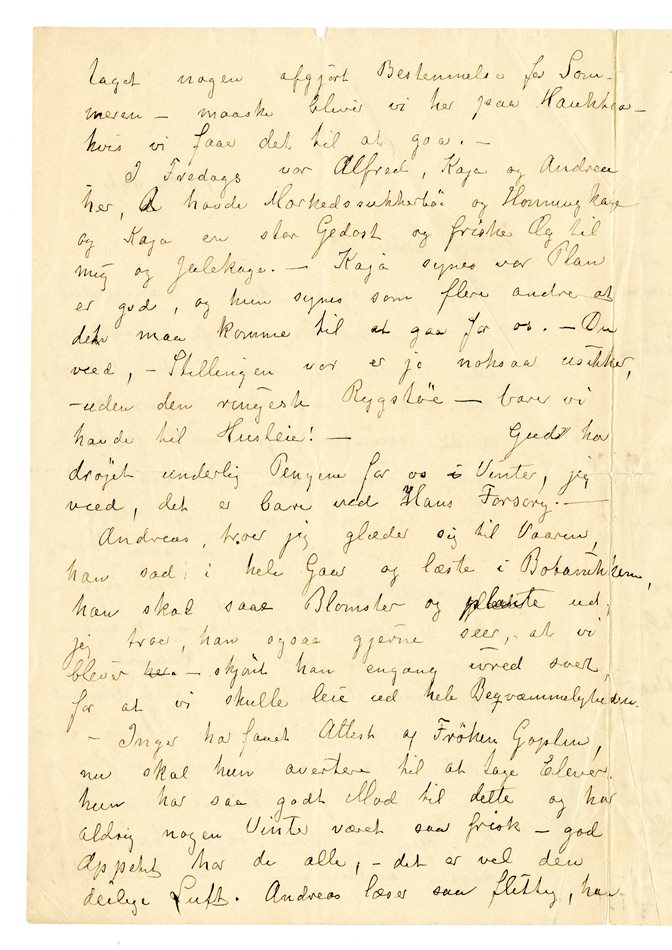 taget nogen afgjørt Bestemmelse for Som-
meren – maaske bliver vi her paa Hauketo –
hvis vi faaer det til at gaa. –
I Fredags var Alfred, Kaja og Andrea
her, A havde Markedssukkertøi og Honningkage
og Kaja en stor Gedost og friske Æg til
mig og Julekage. – Kaja synes vor Plan
er god, og hun synes som flere andre at
det maa komme til at gaa for os. – Du
veed, – Stillingen vor er jo noksaa usikker,
– uden den ringeste Rygstøe – bare vi
havde til Husleie! – Gud har
drøjet underlig Pengene for os i Vinter, jeg
veed, det er bare ved Hans Forsorg. –
Andreas, troer jeg glæder sig til Vaaren,
han sad i hele Gaar og læste i Botanikken,
han skal saae Blomster og plante ud,
jeg troer, han ogsaa gjerne seer, at vi
blever – skjønt han engang ivred svert,
for at vi skulle leie ud hele Beqvæmmeligheden.
– Inger har faaet Attest af Frøken Gaplin,
nu skal hun avertere til at tage Elever.
hun har saa godt Mod til dette og har
aldrig nogen Vinter været saa frisk – god
Appetit har de alle, – det er vel den
deilige Luft. Andreas læser saa flittig, han